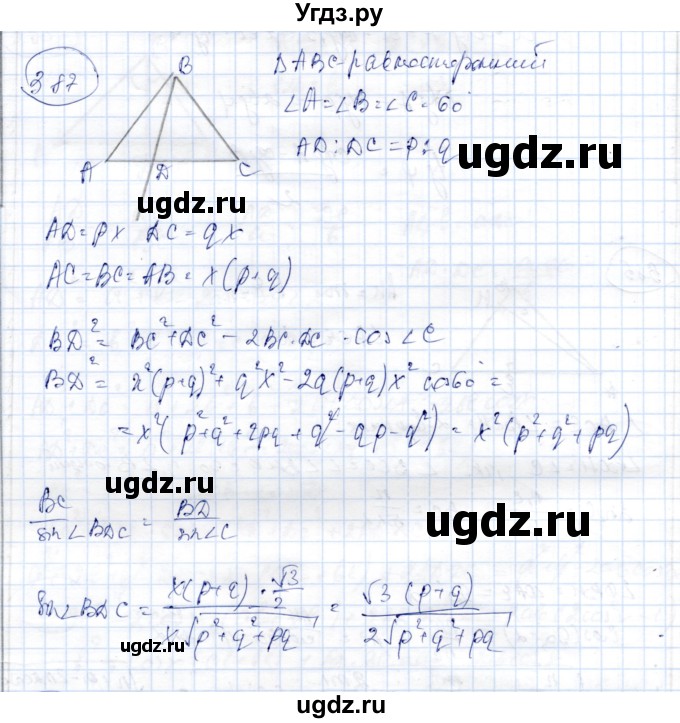 Угдз.ру
387
B
A D C
ΔABC-равносторонний
∠A=∠B=∠C=60°
AD:DC=p:q
ugdz.ru
ugdz.ru
AD=px DC=qx
AC=BC=AB=x(p+q)
BD²= BC²+DC²-2BC·DC·cos∠C
BD²= x²(p+q)²+q²x²-2q(p+q)x² cos60°=
=x²(p²+q²+2pq+q²-qp-q²)= x²(p²+q²+pq)
ugdz.ru
ugdz.ru
BC/sin∠BDC = BD/sin∠C
sin∠BDC = (x(p+q)·√3/2)/(x√(p²+q²+pq)) = (√3(p+q))/(2√(p²+q²+pq))
ugdz.ru
ugdz.ru